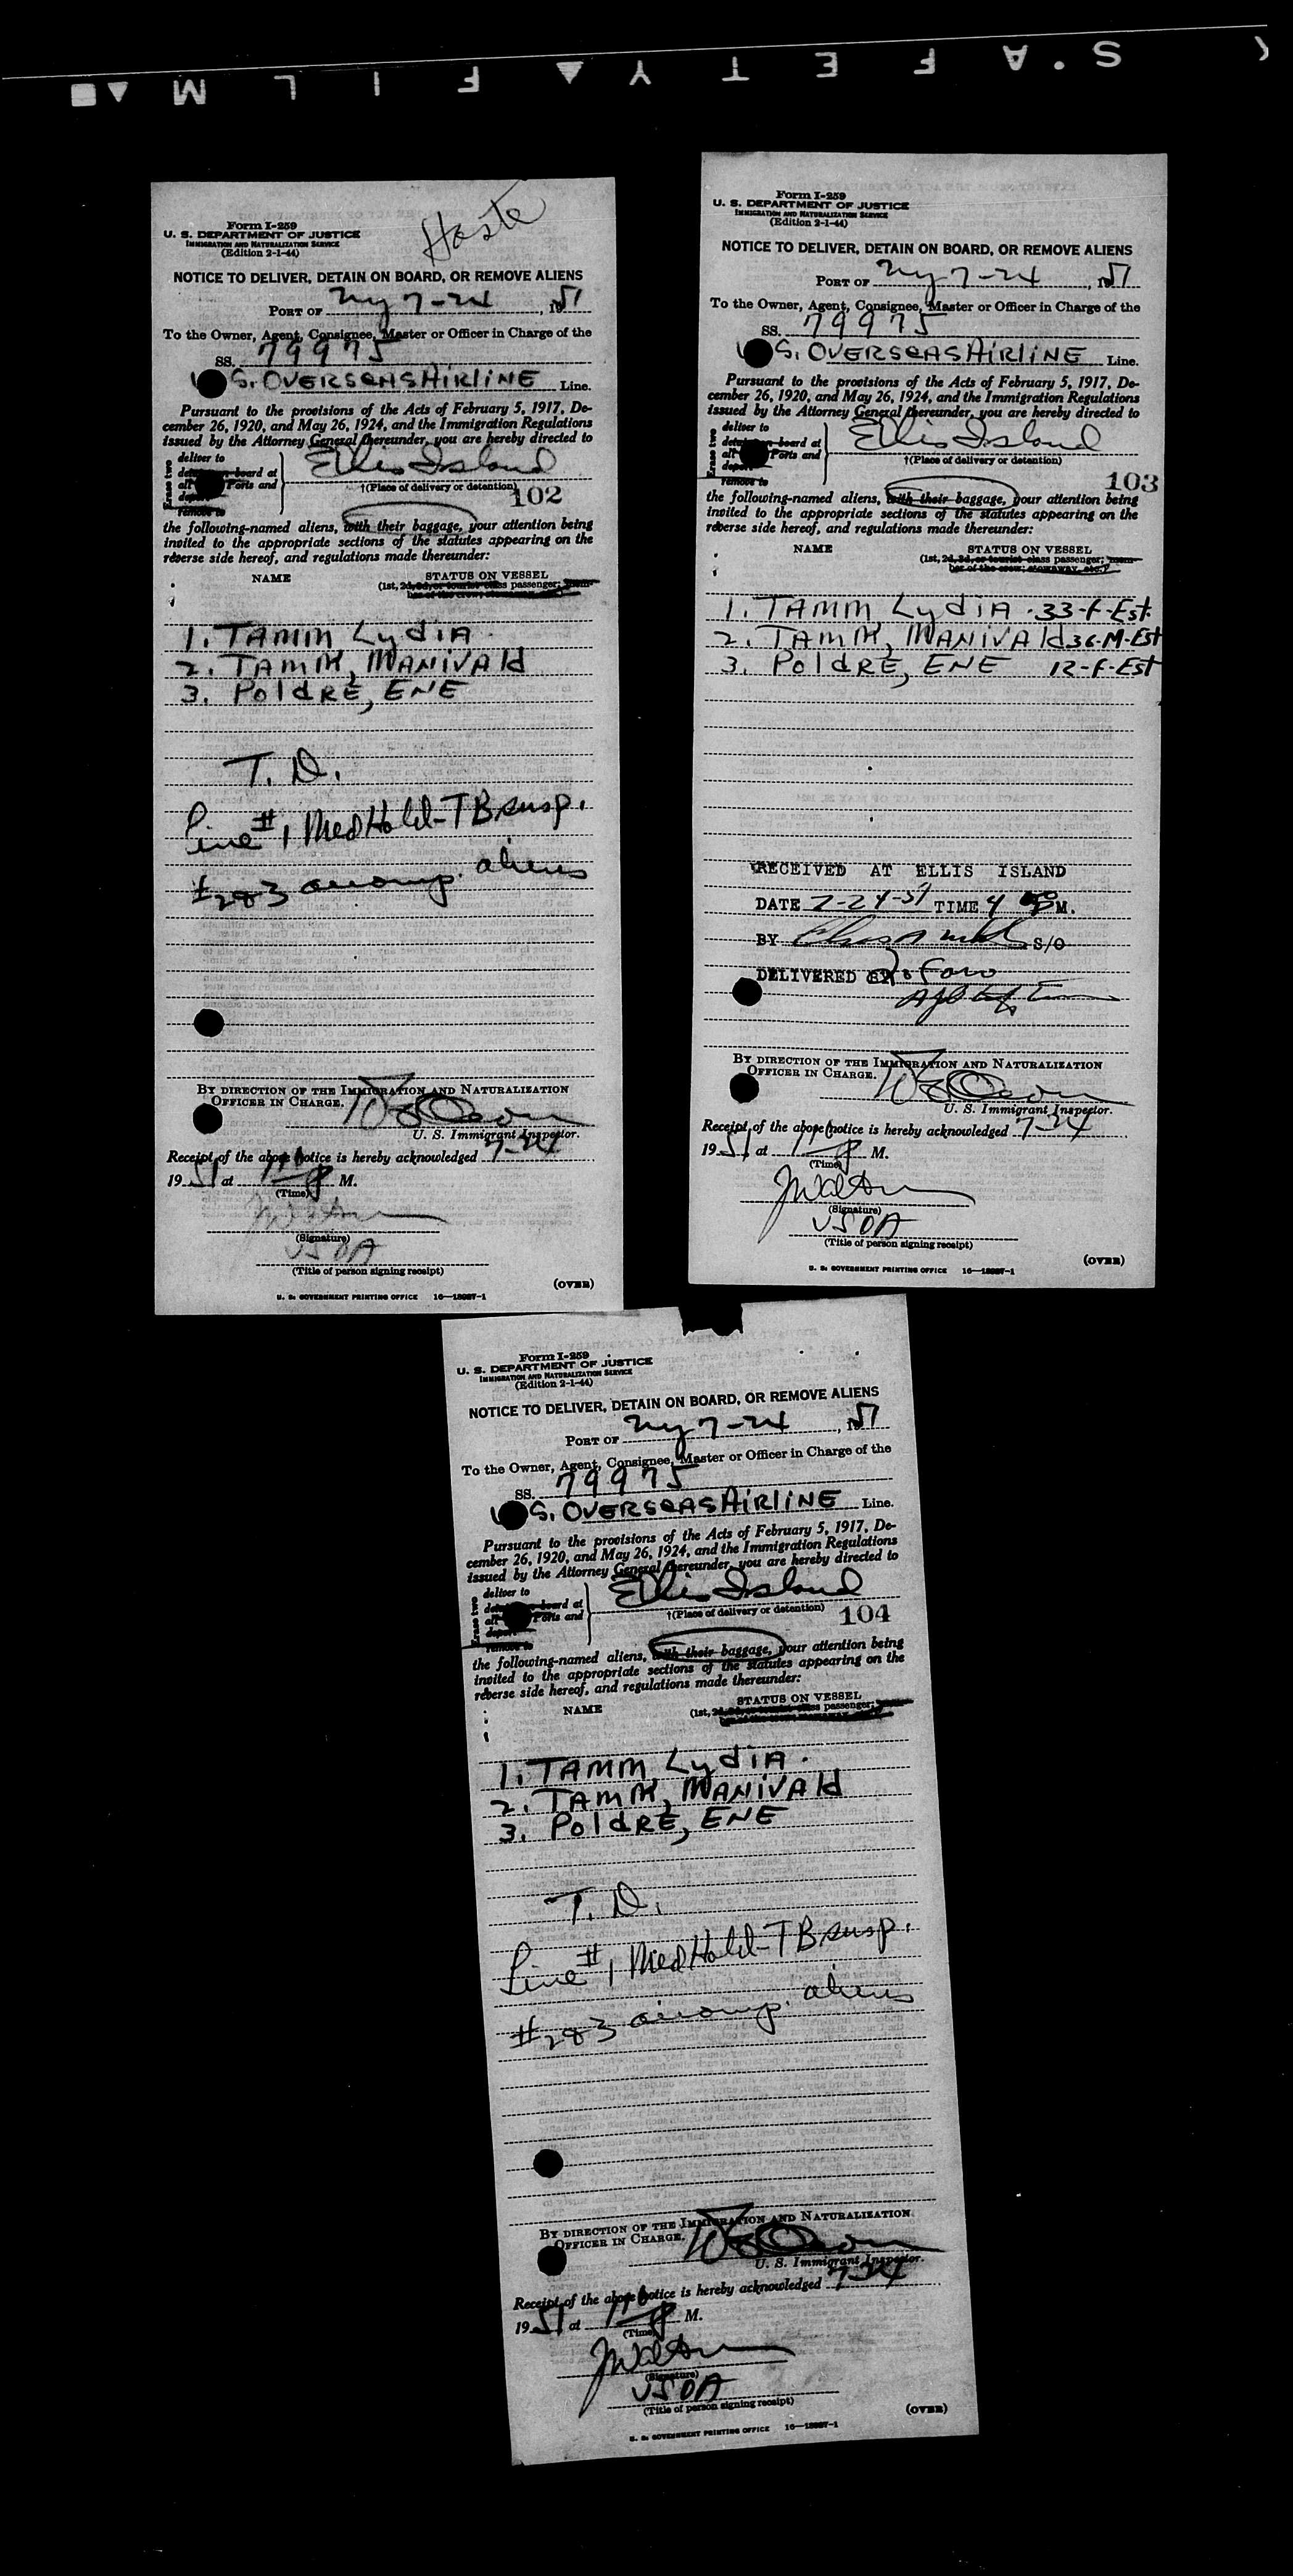 SAFETY FILM
Form I-259
U. S. DEPARTMENT OF JUSTICE
IMMIGRATION AND NATURALIZATION SERVICE
(Edition 2-1-44)
Haste
NOTICE TO DELIVER, DETAIN ON BOARD, OR REMOVE ALIENS
PORT OF NY 7-24, 1951
To the Owner, Agent, Consignee, Master or Officer in Charge of the
SS. 79975
U.S. OVERSEAS AIRLINE Line.
Pursuant to the provisions of the Acts of February 5, 1917, De-
cember 26, 1920, and May 26, 1924, and the Immigration Regulations
issued by the Attorney General thereunder, you are hereby directed to
Erase two
deliver to
detain on board at
all Ports and
deport
remove to
Ellis Island
†(Place of delivery or detention)
102
the following-named aliens, with their baggage, your attention being
invited to the appropriate sections of the statutes appearing on the
reverse side hereof, and regulations made thereunder:
NAME STATUS ON VESSEL
(1st, 2d, 3d, or tourist class passenger; mem-
ber of the crew; stowaway, etc.)
1. TAMM LydiA.
2. TAMM, MANIVAld
3. PoldRE, ENE
T. D.
Line #1 Med Hold-TB susp.
#2&3 accomp. aliens
BY DIRECTION OF THE IMMIGRATION AND NATURALIZATION
OFFICER IN CHARGE.
U. S. Immigrant Inspector.
Receipt of the above notice is hereby acknowledged 7-24
1951 at M.
(Time)
(Signature)
USOA
(Title of person signing receipt)
(OVER)
U. S. GOVERNMENT PRINTING OFFICE 16—18987-1
Form I-259
U. S. DEPARTMENT OF JUSTICE
IMMIGRATION AND NATURALIZATION SERVICE
(Edition 2-1-44)
NOTICE TO DELIVER, DETAIN ON BOARD, OR REMOVE ALIENS
PORT OF NY 7-24, 1951
To the Owner, Agent, Consignee, Master or Officer in Charge of the
SS. 79975
U.S. OVERSEAS AIRLINE Line.
Pursuant to the provisions of the Acts of February 5, 1917, De-
cember 26, 1920, and May 26, 1924, and the Immigration Regulations
issued by the Attorney General thereunder, you are hereby directed to
Erase two
deliver to
detain on board at
all Ports and
deport
remove to
Ellis Island
†(Place of delivery or detention)
103
the following-named aliens, with their baggage, your attention being
invited to the appropriate sections of the statutes appearing on the
reverse side hereof, and regulations made thereunder:
NAME STATUS ON VESSEL
(1st, 2d, 3d, or tourist class passenger; mem-
ber of the crew; stowaway, etc.)
1. TAMM LydiA . 33-F-Est.
2. TAMM, MANIVAld 36-M-Est
3. PoldRE, ENE 12-F-Est
RECEIVED AT ELLIS ISLAND
DATE 7-24-51 TIME 4 M.
BY S/O
DELIVERED BY
BY DIRECTION OF THE IMMIGRATION AND NATURALIZATION
OFFICER IN CHARGE.
U. S. Immigrant Inspector.
Receipt of the above notice is hereby acknowledged 7-24
1951 at M.
(Time)
(Signature)
USOA
(Title of person signing receipt)
(OVER)
U. S. GOVERNMENT PRINTING OFFICE 16—18987-1
Form I-259
U. S. DEPARTMENT OF JUSTICE
IMMIGRATION AND NATURALIZATION SERVICE
(Edition 2-1-44)
NOTICE TO DELIVER, DETAIN ON BOARD, OR REMOVE ALIENS
PORT OF NY 7-24, 1951
To the Owner, Agent, Consignee, Master or Officer in Charge of the
SS. 79975
U.S. OVERSEAS AIRLINE Line.
Pursuant to the provisions of the Acts of February 5, 1917, De-
cember 26, 1920, and May 26, 1924, and the Immigration Regulations
issued by the Attorney General thereunder, you are hereby directed to
Erase two
deliver to
detain on board at
all Ports and
deport
remove to
Ellis Island
†(Place of delivery or detention)
104
the following-named aliens, with their baggage, your attention being
invited to the appropriate sections of the statutes appearing on the
reverse side hereof, and regulations made thereunder:
NAME STATUS ON VESSEL
(1st, 2d, 3d, or tourist class passenger; mem-
ber of the crew; stowaway, etc.)
1. TAMM LydiA.
2. TAMM, MANIVAld
3. PoldRE, ENE
T. D.
Line #1 Med Hold-TB susp.
#2&3 accomp. aliens
BY DIRECTION OF THE IMMIGRATION AND NATURALIZATION
OFFICER IN CHARGE.
U. S. Immigrant Inspector.
Receipt of the above notice is hereby acknowledged 7-24
1951 at M.
(Time)
(Signature)
USOA
(Title of person signing receipt)
(OVER)
U. S. GOVERNMENT PRINTING OFFICE 16—18987-1